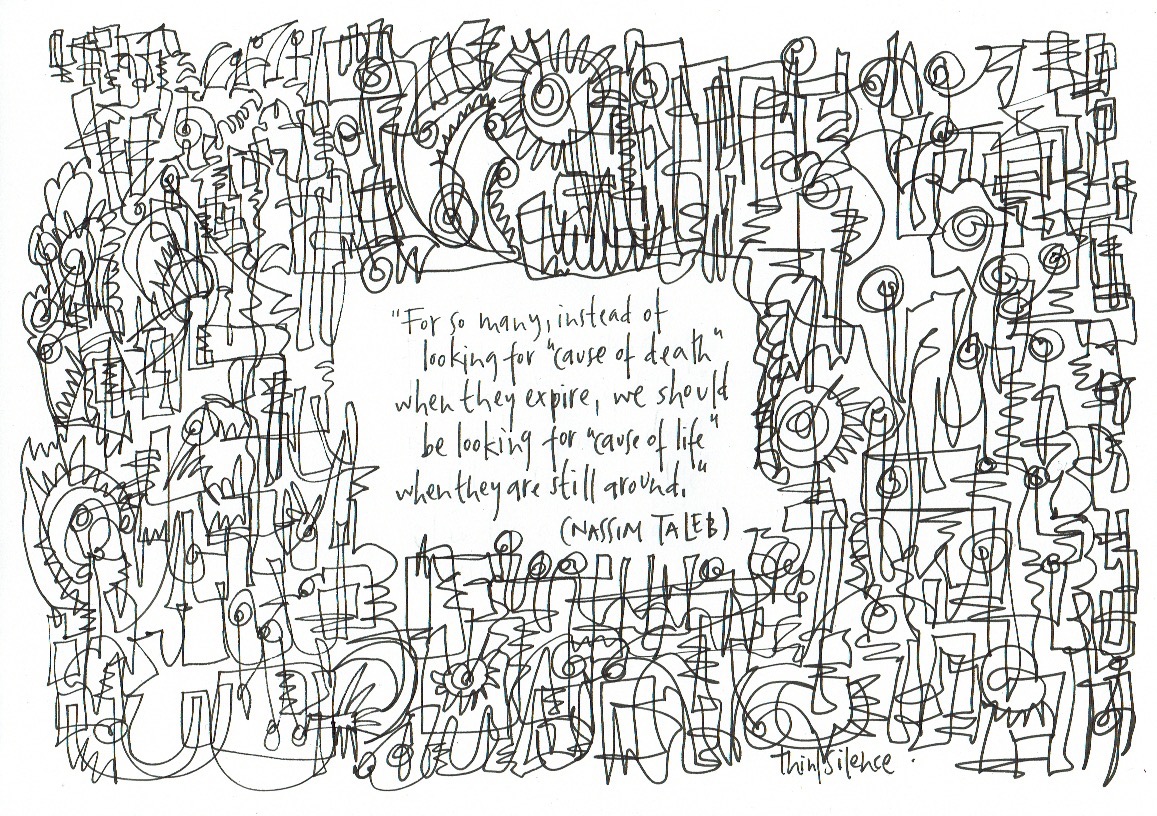 "For so many, instead of
looking for "cause of death"
when they expire, we should
be looking for "cause of life"
when they are still around."
(NASSIM TALEB)
Thinsilence